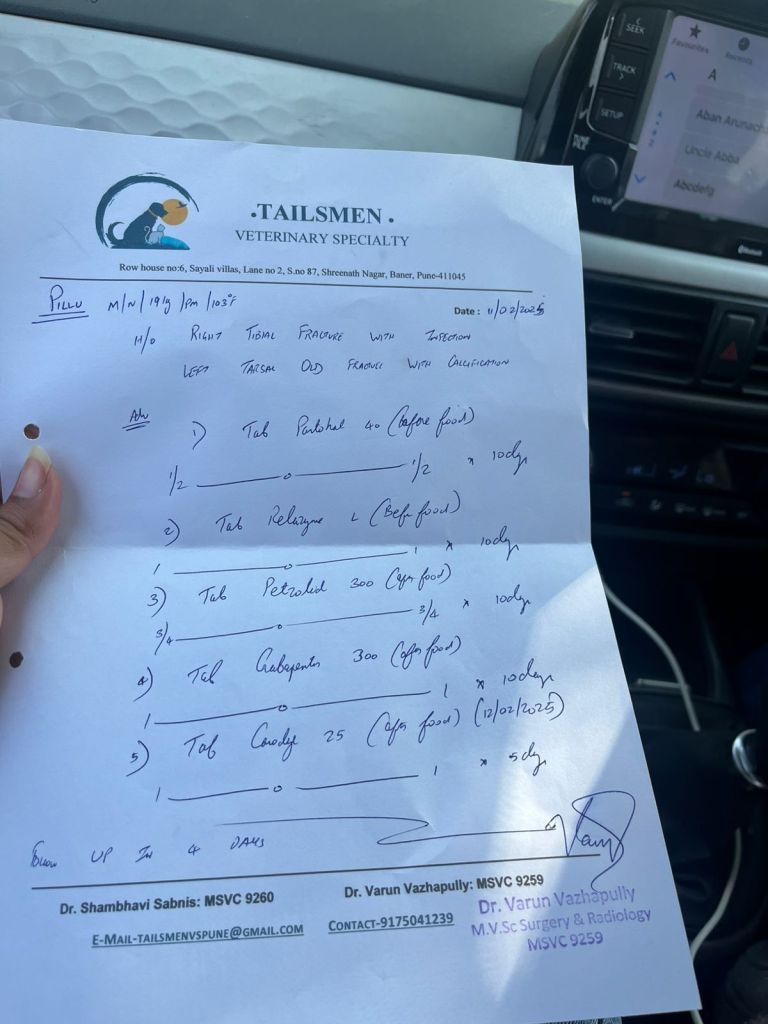 SEEK
TRACK
SETUP
ENTER
Favourites
Recents
A
Aban Arunach
Uncle Abba
Abcdefg
Bluetooth
·TAILSMEN·
VETERINARY SPECIALTY
Row house no:6, Sayali villas, Lane no 2, S.no 87, Shreenath Nagar, Baner, Pune-411045
PILLU M/N/ /103°F
Date: 11/02/2025
H/O RIGHT TIBIAL FRACTURE WITH INFECTION
LEFT TARSAL OLD FRACTURE WITH CALCIFICATION
Adv
1) Tab 40 (Before food)
1/2 — 0 — 1/2 x 10days
2) Tab L (Before food)
1 — 0 — 1 x 10days
3) Tab 300 (after food)
3/4 — 0 — 3/4 x 10days
4) Tab Gabapentin 300 (after food)
1 — 0 — 1 x 10days
5) Tab 25 (after food) (12/02/2025)
1 — 0 — 1 x 5days
FOLLOW UP IN 4 DAYS
Dr. Shambhavi Sabnis: MSVC 9260
Dr. Varun Vazhapully: MSVC 9259
E-MAIL-TAILSMENVSPUNE@GMAIL.COM
CONTACT-9175041239
Dr. Varun Vazhapully
M.V.Sc Surgery & Radiology
MSVC 9259